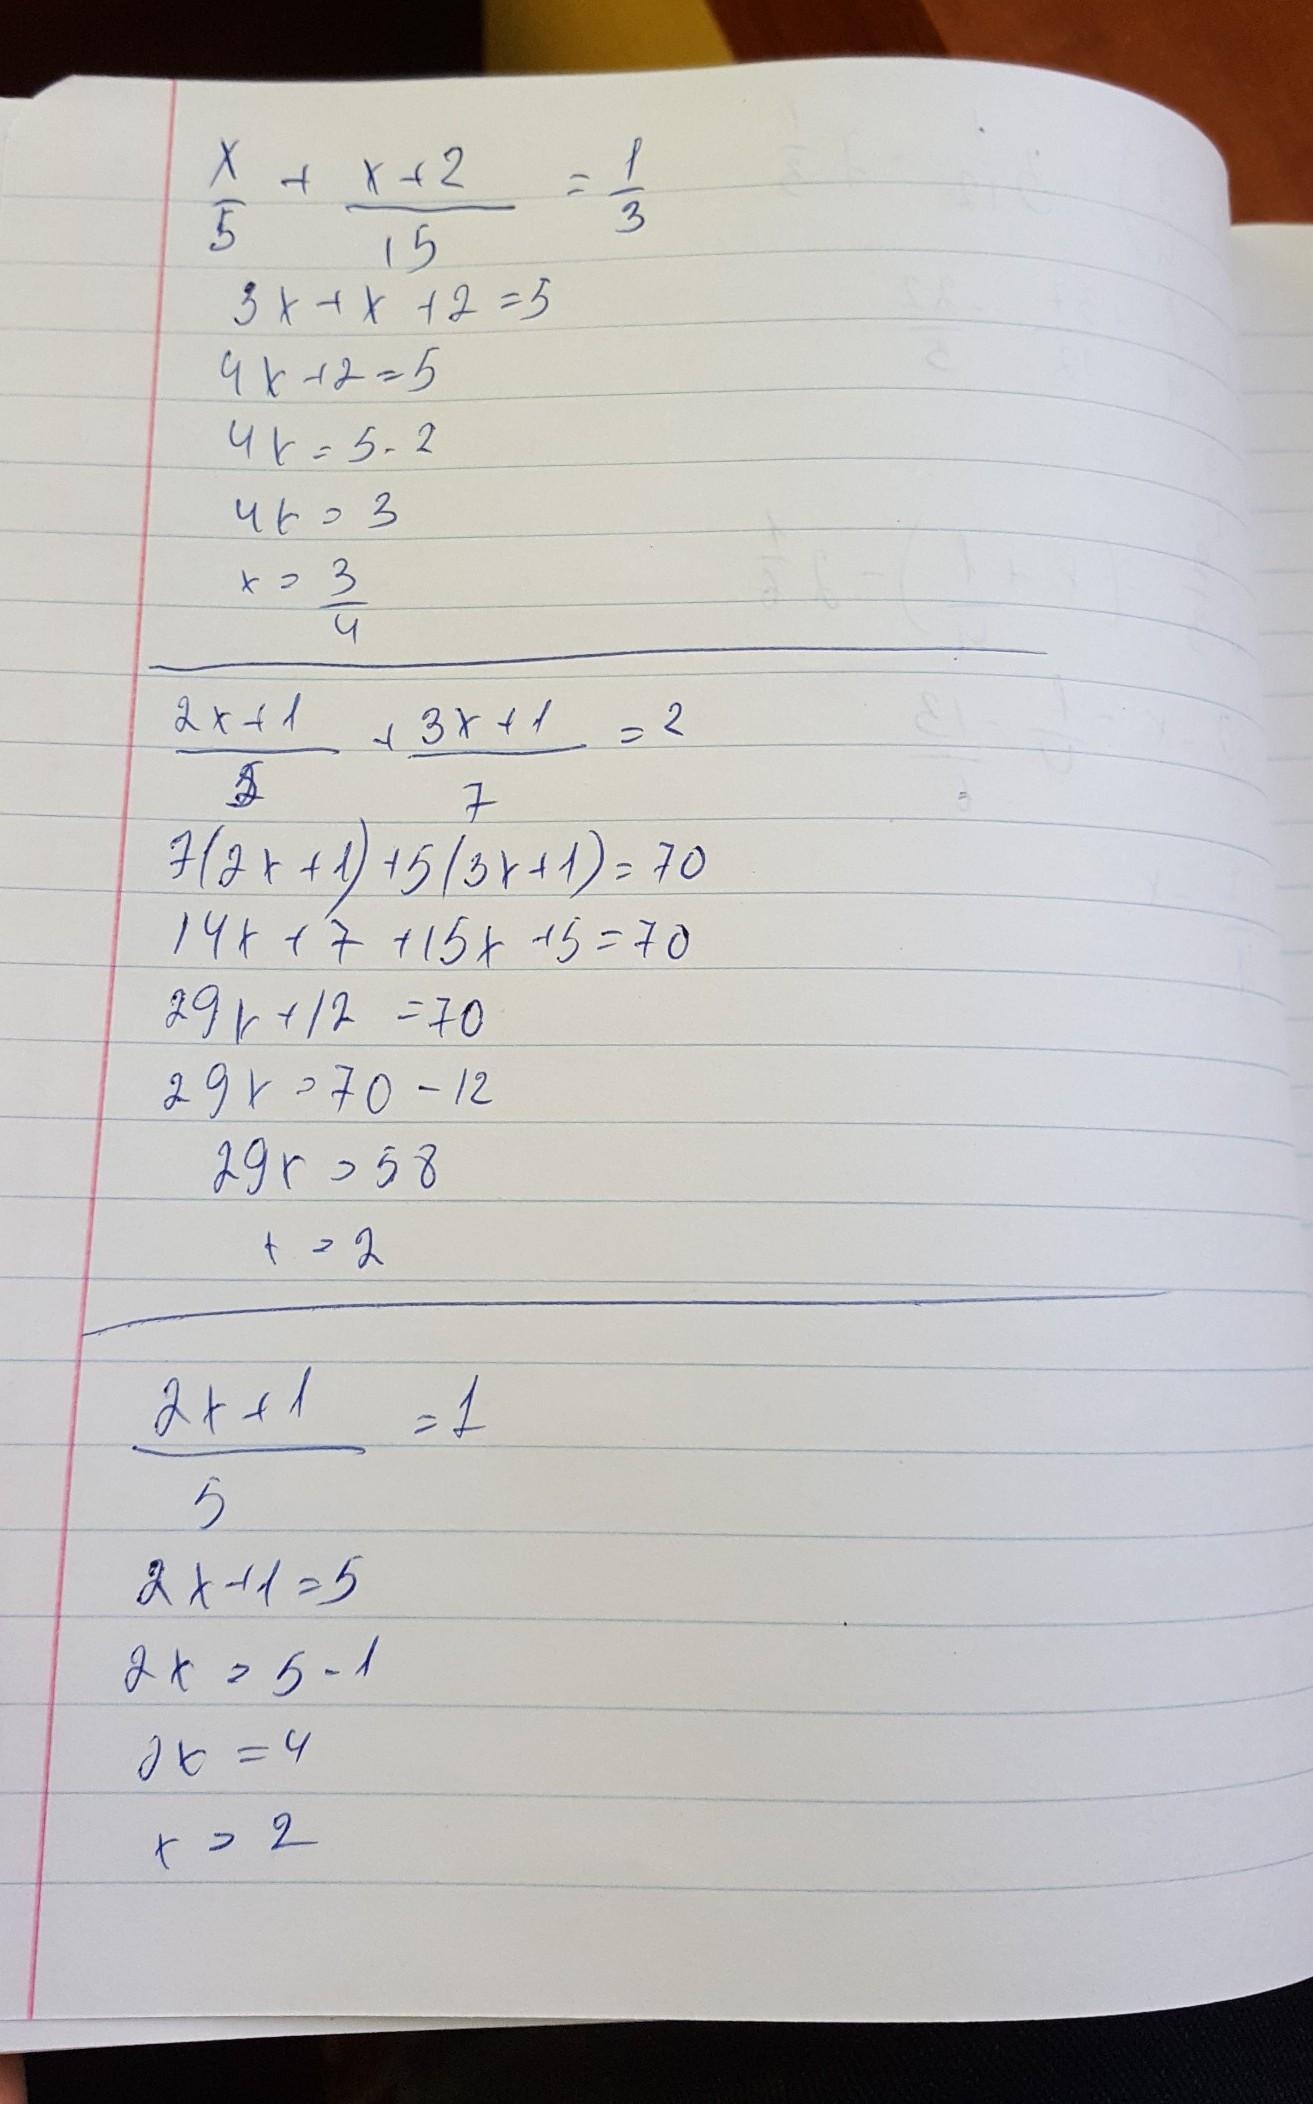 x/5 + (x+2)/15 = 1/3
3x+x+2=5
4x+2=5
4x=5-2
4x=3
x=3/4
(2x+1)/5 + (3x+1)/7 = 2
7(2x+1)+5(3x+1)=70
14x+7+15x+5=70
29x+12=70
29x=70-12
29x=58
x=2
(2x+1)/5 = 1
2x+1=5
2x=5-1
2x=4
x=2